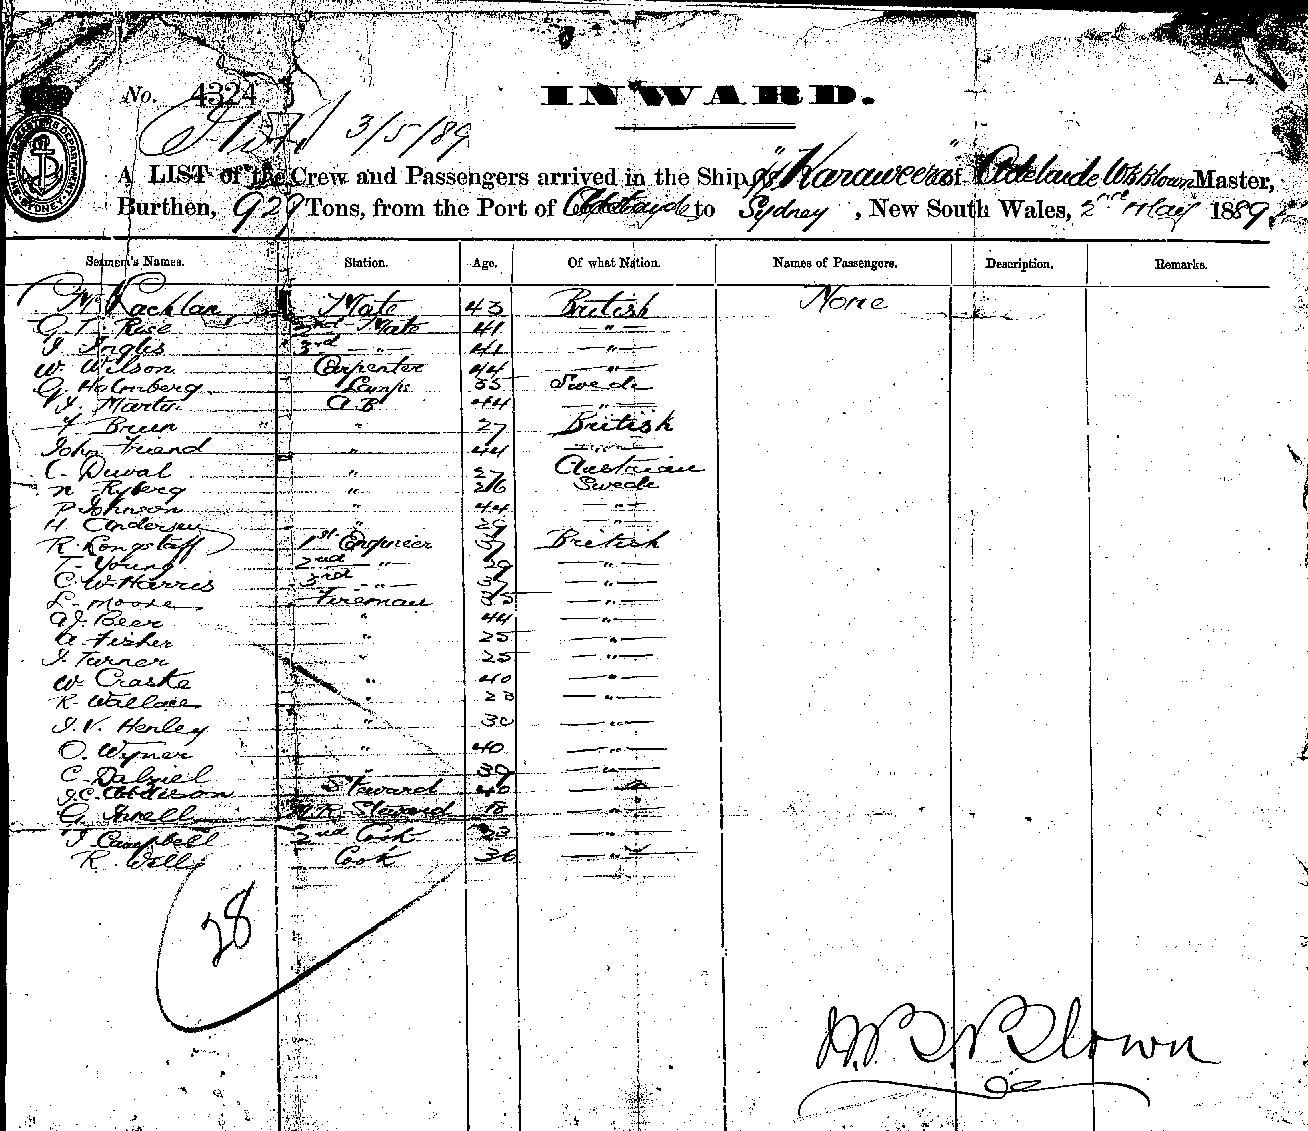 A—4
No. 4324
INWARD.
3/5/89
A LIST of the Crew and Passengers arrived in the Ship "Karaweera" of Adelaide W B Blown Master,
Burthen, 929 Tons, from the Port of Adelaide to Sydney, New South Wales, 2nd May 1889
Seamen's Names. Station. Age. Of what Nation. Names of Passengers. Description. Remarks.
McLachlan Mate 43 British None
G. T. Rice 2nd Mate 41 " 
J Inglis 3rd " 41 "
W. Wilson Carpenter 44 "
G. Holmberg Lamps 35 Swede
J. Martin A B 44 "
F Bruen " 27 British
John Friend " 44 "
C. Duval " 27 Austrian
N Ryberg " 26 Swede
P Johnson " 44 "
H Andersen " 29 "
R. Longstaff 1st Engineer 37 British
T. Young 2nd " 39 "
C. W. Harris 3rd " 37 "
L. Moore Fireman "
A J. Beer " 44 "
A Fisher " 25 "
J. Turner " 25 "
W. Craske " 40 "
R. Wallace " 23 "
J. V. Henley " 30 "
O. Wyner " 40 "
C. Dalziel " 39 "
J. C. Steward 40 "
G. Steward 18 "
J Campbell 2nd Cook 23 "
R. Wells Cook 36 "
28
W. B. Blown